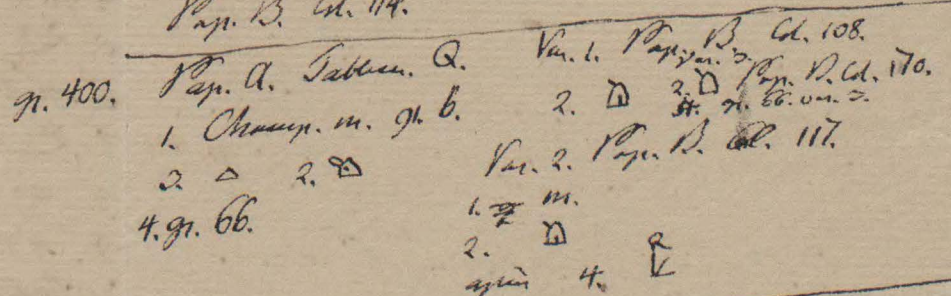 Pap. B. Col. 114.
gr. 400. Pap. A. Tableau. Q.
1. Champ. m. gr. 6.
3. 2.
4. gr. 66.
Var. 1. Pap. B. Col. 108.
2. 2. Pap. D. Col. 170.
4. gr. 66. var. 3.
Var. 2. Pap. B. Col. 117.
1. m.
2.
après 4.